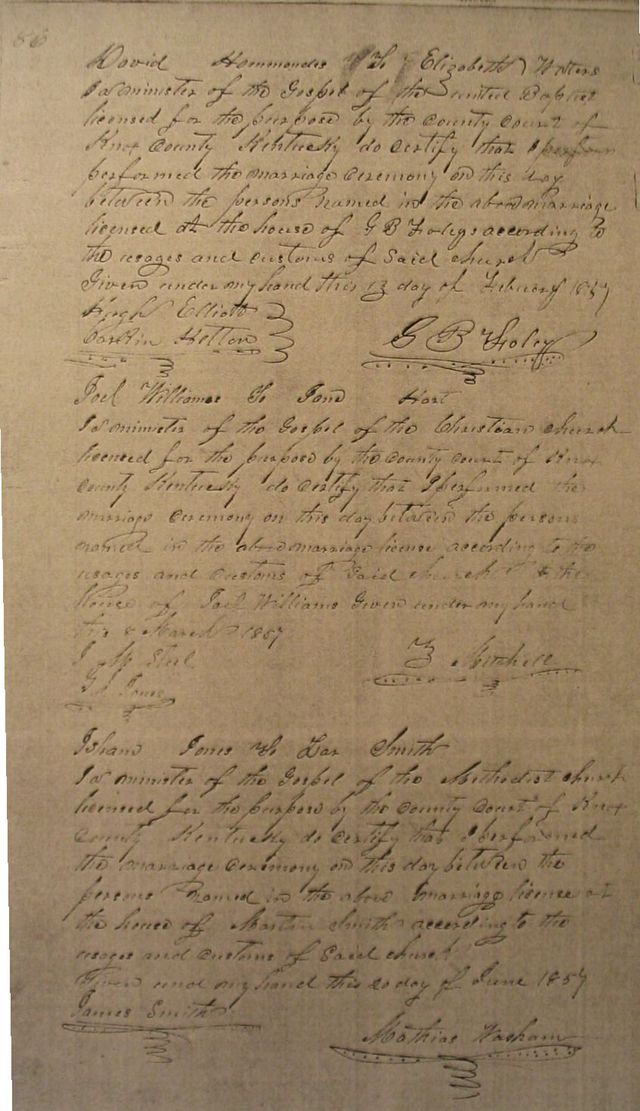 86
David Hammondes To Elizabeth Waters
I a minister of the Gospel of the united Baptist
licensed for the purpose by the county court of
Knox County Kentucky do certify that I perform
performed the marriage ceremony on this day
between the persons named in the above marriage
licensed at the house of G B Foleys according to
the usages and customs of said church
Given under my hand this 13 day of February 1857
Hugh Elliott
Helton
G B Foley
Joel Williams To Hart
I a minister of the Gospel of the Christian church
licensed for the purpose by the county court of Knox
County Kentucky do certify that I performed the
marriage ceremony on this day between the persons
named in the above marriage license according to the
usages and customs of said church at the
House of Joel Williams Given under my hand
this 8 March 1857
J M Steel
Jones
Z Mitchell
Isham Jones To Smith
I a minister of the Gospel of the Methodist church
licensed for the purpose by the County Court of Knox
County Kentucky do certify that I performed
the marriage ceremony on this day between the
persons named in the above marriage license at
the house of Martin Smith according to the
usages and customs of said church
Given und my hand this 20 day of June 1857
James Smith
Mathias Washam